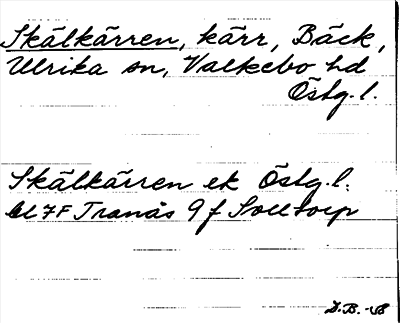 Skälkärren, kärr, Bäck,
Ulrika sn, Valkebo hd
Östg. l.
Skälkärren ek Östg. l.
bl 7F Tranås 9f Solltorp
D.B. -68